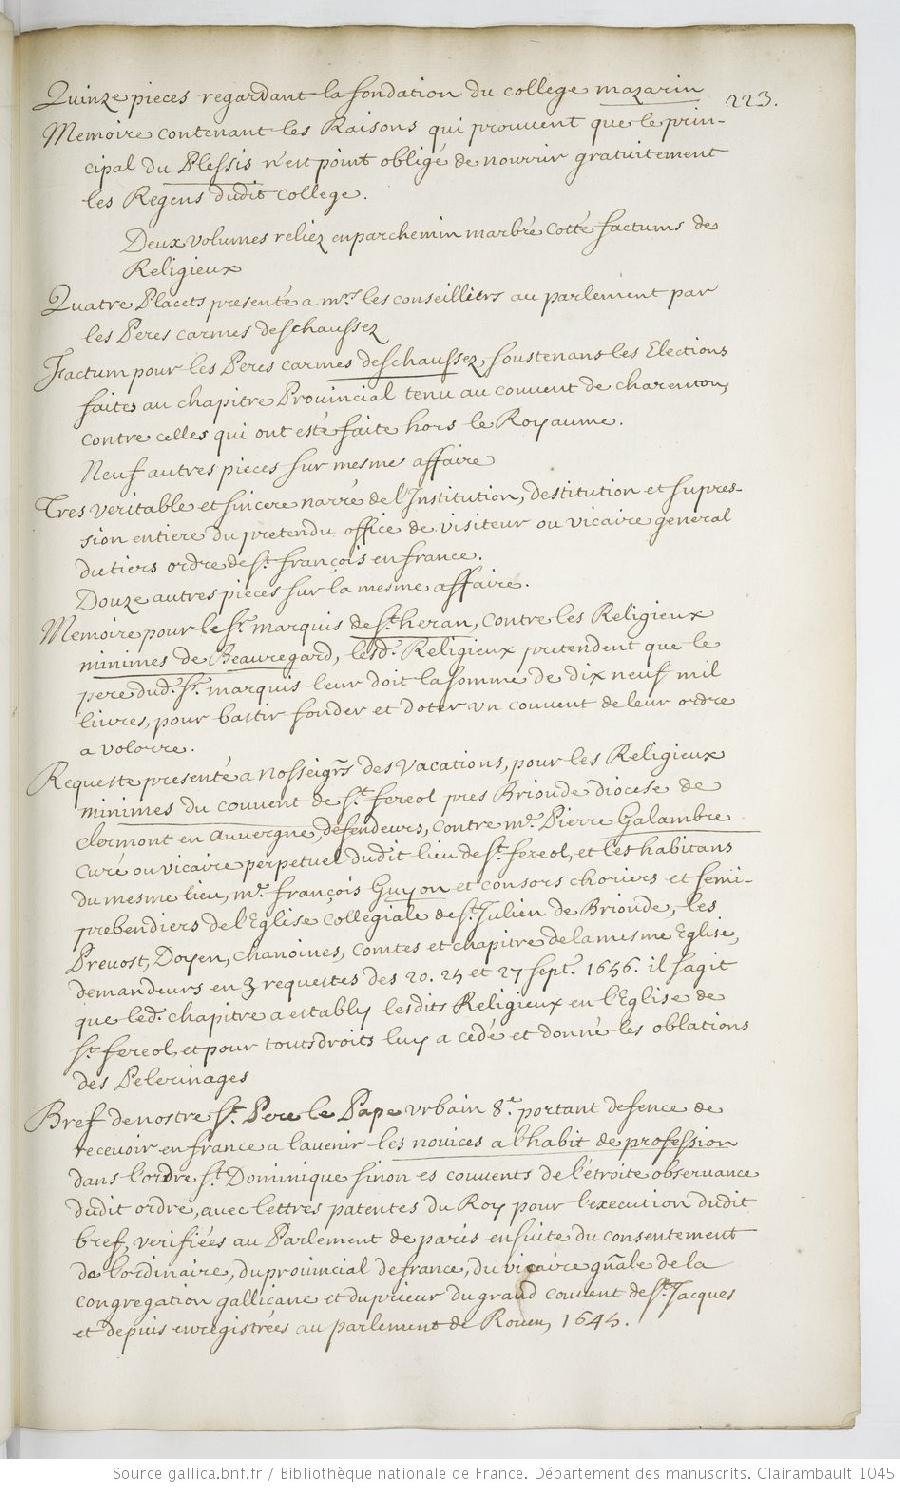 223.
Quinze pieces regardant la fondation du college mazarin
Memoire contenant les Raisons qui prouvent que le prin-
cipal du Plessis n'est point obligé de nourrir gratuitement
les Regens dudit college.
Deux volumes reliez en parchemin marbré cotté factums de
Religieux
Quatre Placets presenté a mrs les conseillers au parlement par
les Peres carmes deschaussez
Factum pour les Peres carmes deschaussez, soustenans les Elections
faites au chapitre Prouincial tenu au couuent de charenton,
contre celles qui ont esté faite hors le Royaume.
Neuf autres pieces sur mesme affaire
Tres veritable et sincere narré de l'Institution, destitution et supres-
sion entiere du pretendu office de visiteur ou vicaire general
du tiers ordre de St. françois en france.
Douze autres pieces sur la mesme affaire.
Memoire pour le Sr. marquis de St. heran, contre les Religieux
minimes de Beauregard, lesd. Religieux pretendent que le
pere dud. Sr. marquis leur doit la somme de dix neuf mil
liures, pour bastir fonder et doter un couuent de leur ordre
a volorre.
Requeste presenté a Nosseigrs des vacations, pour les Religieux
minimes du couuent de St. fereol pres Brioude diocese de
clermont en auvergne, défendeurs, contre me. Pierre Galambre
curé ou vicaire perpetuel dudit lieu de St. fereol, et les habitans
du mesme lieu, me. françois Guyon et consors choriers et semi-
prebendiers de l'Eglise collegiale de St. Julien de Brioude, les
Prevost, Doyen, chanoines, comtes et chapitre de la mesme Eglise,
demandeurs en 3 requestes des 20. 25 et 27 septe. 1656. il s'agit
que led. chapitre a establÿ lesdits Religieux en l'Eglise de
St. fereol, et pour touts droits luy a cédé et donné les oblations
des Pelerinages
Bref de nostre St. Pere le Pape urbain 8.e portant defence de
recevoir en france a l'auenir les nouices a l'habit de profession
dans l'ordre St. Dominique sinon es couuents de l'étroite obseruance
dudit ordre, avec lettres patentes du Roy pour l'execution dudit
bref, verifiées au Parlement de paris en suite du consentement
de l'ordinaire, du prouincial de france, du vicaire gñale de la
congregation gallicane et du prieur du grand couuent de St. Jacques
et depuis enregistrées au parlement de Rouen, 1645.
Source gallica.bnf.fr / Bibliothèque nationale de France. Département des manuscrits. Clairambault 1045